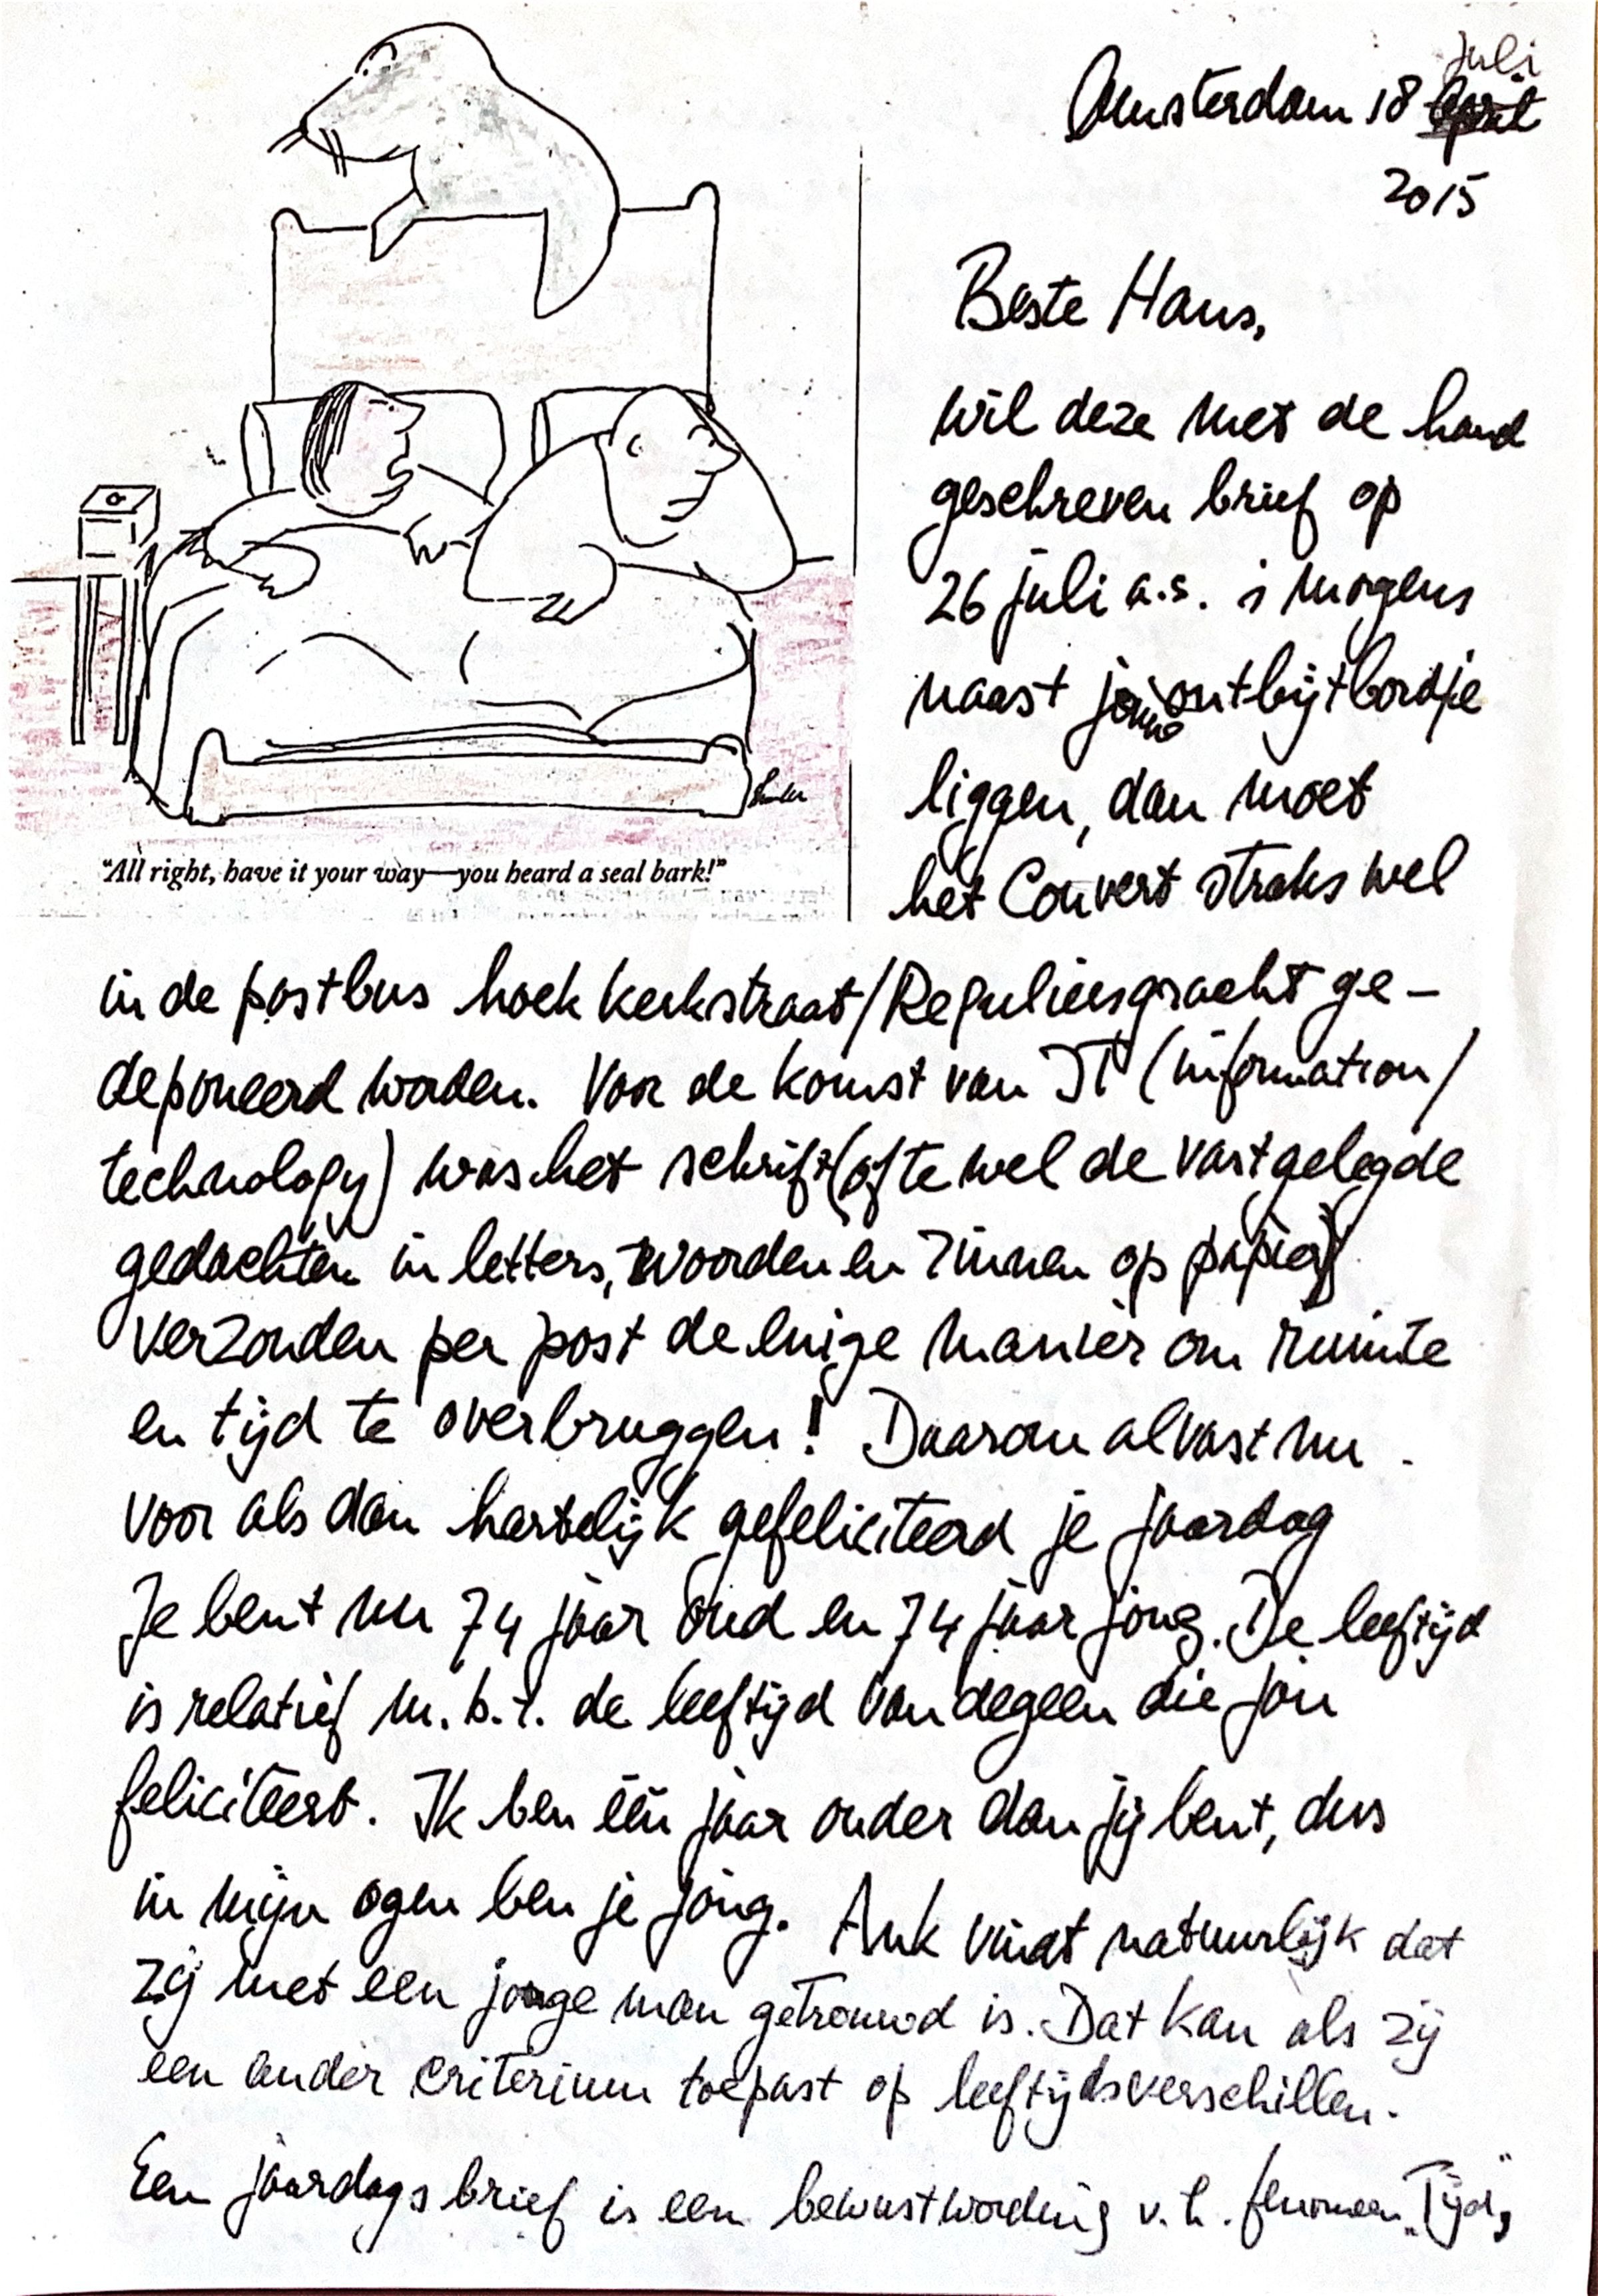 Amsterdam 18 juli
2015
Beste Hans,
wil deze met de hand
geschreven brief op
26 juli a.s. 's morgens
naast jouw ontbijtbordje
liggen, dan moet
het Couvert straks wel
"All right, have it your way—you heard a seal bark!"
in de postbus hoek Kerkstraat/Reguliersgracht ge-
deponeerd worden. Voor de komst van IT (information/
technology) was het schrift (ofte wel de vastgelegde
gedachten in letters, woorden en zinnen op papier)
verzonden per post de enige manier om ruimte
en tijd te overbruggen! Daarom alvast nu
voor als dan hartelijk gefeliciteerd je jaardag
Je bent nu 74 jaar oud en 74 jaar jong. De leeftijd
is relatief m.b.t. de leeftijd van degeen die jou
feliciteert. Ik ben één jaar ouder dan jij bent, dus
in mijn ogen ben je jong. Ank vindt natuurlijk dat
zij met een jonge man getrouwd is. Dat kan als zij
een ander criterium toepast op leeftijdsverschillen.
Een jaardagsbrief is een bewustwording v.h. fenomeen „Tijd"